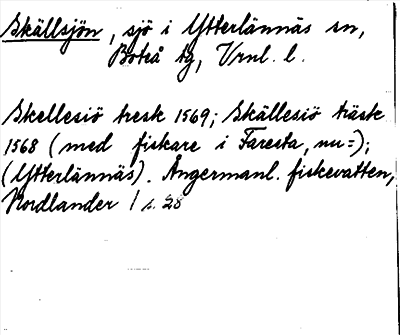 Skällsjön, sjö i Ytterlännäs sn,
Boteå tg, Vrnl. l.
Skellesiö tresk 1569; Skällesiö träsk
1568 (med fiskare i Faresta, nu=);
(Ytterlännäs). Ångermanl. fiskevatten,
Nordlander 1 s. 28